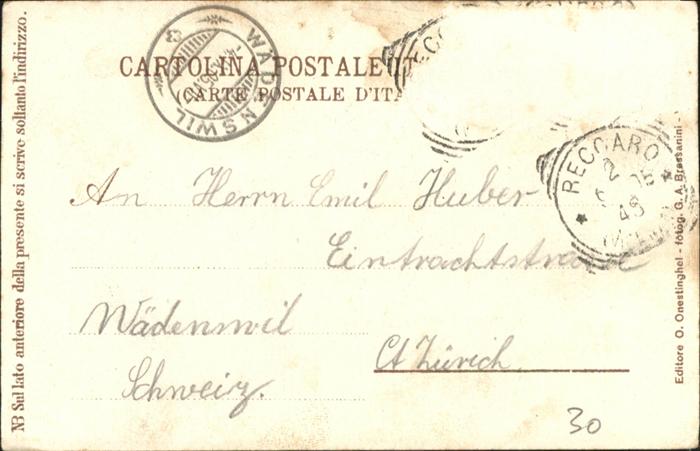 CARTOLINA POSTALE IT
(CARTE POSTALE D'ITA
WÄDENSWIL
RECOARO
2
05
An Herrn Emil Huber
Eintrachtstrasse
Wädenswil
Ct Zürich
Schweiz.
30
NB Sul lato anteriore della presente si scrive soltanto l'indirizzo.
Editore O. Onestinghel - fotog. G. A. Bressanini -